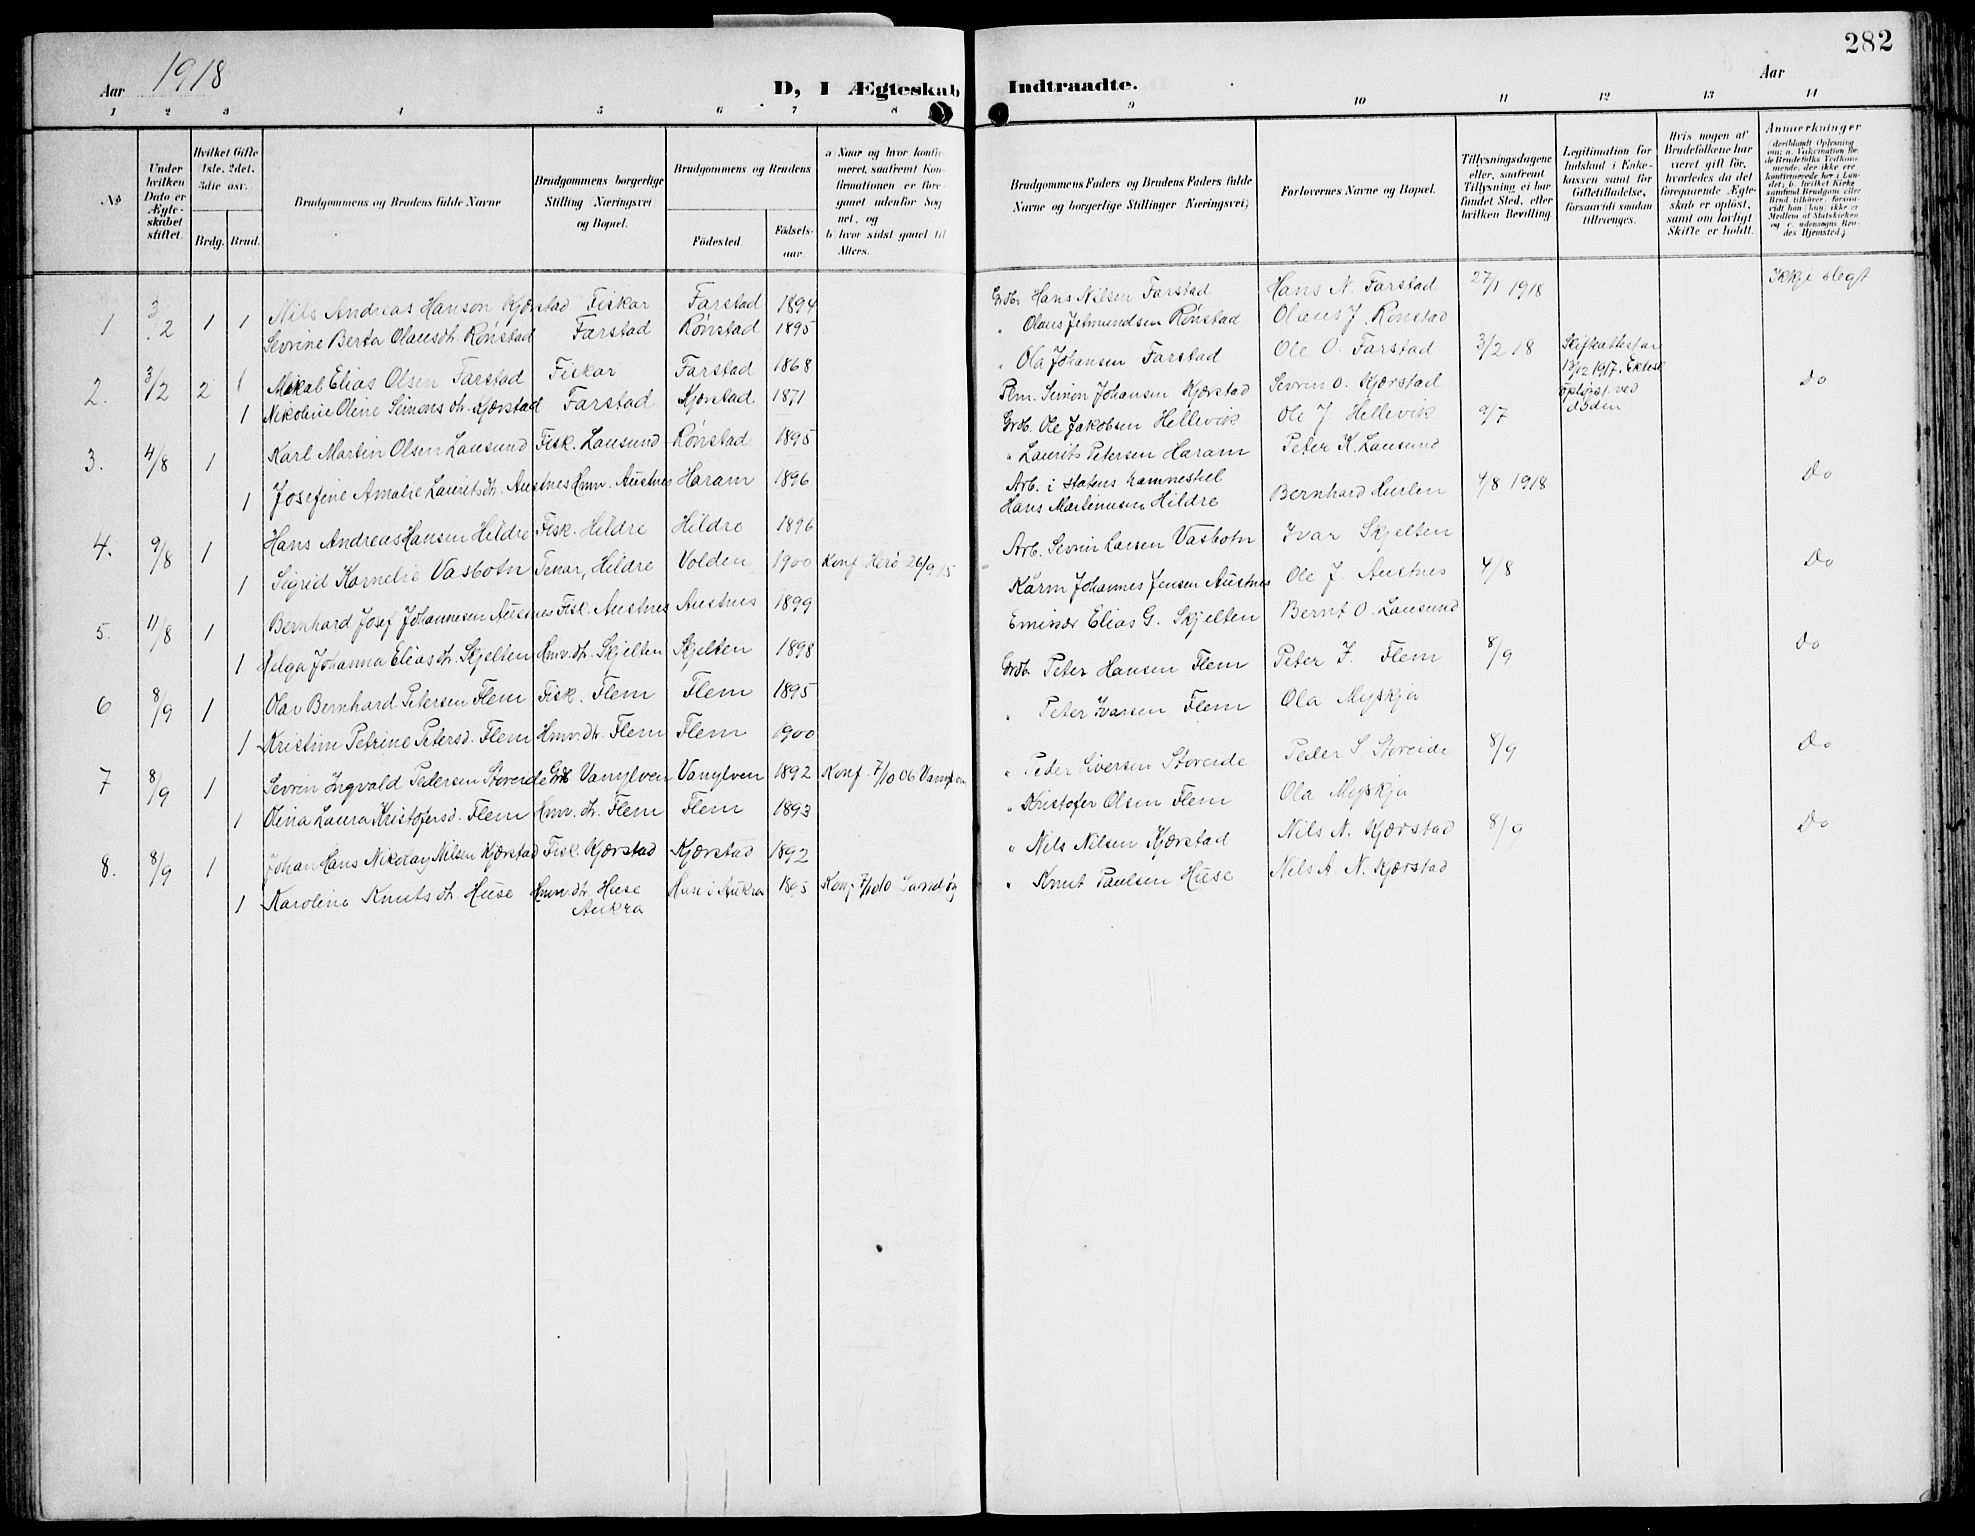 282
Aar 1918
D, I Ægteskab Indtraadte.
Aar
1 2 3 4 5 6 7 8 9 10 11 12 13 14
No
Under hvilken Dato er Ægteskabet stiftet.
Hvilket Gifte 1ste, 2det, 3die osv.
Brdg. Brud.
Brudgommens og Brudens fulde Navne
Brudgommens borgerlige Stilling (Næringsvei og Bopæl.
Brudgommens og Brudens
Fødested.
Fødselsaar
a Naar og hvor konfirmeret, saafremt Konfirmationen er foregaaet udenfor Sognet, og
b hvor sidst gaaet til Alters.
Brudgommens Faders og Brudens Faders fulde Navne og borgerlige Stillinger (Næringsvei)
Forlovernes Navne og Bopæl.
Tillysningsdagene eller, saafremt Tillysning ei har fundet Sted, efter hvilken Bevilling.
Legitimation for Indskud i Enkekassen samt for Giftetilladelse, forsaavidt saadan tiltrænges.
Hvis nogen af Brudefolkene har været gift før, hvorledes da det foregaaende Ægteskab er opløst, samt om lovligt Skifte er holdt.
Anmerkninger
1 3/2 1 1 Nils Andreas Hanson Kjærstad Fiskar Farstad 1894 Grdb. Hans Nilsen Farstad Hans N. Farstad 27/1 1918 Ikkje slegt
Sevrine Berta Olausdt. Rönstad Farstad Rönstad 1895 " Olaus Jetmundsen Rönstad Olaus J. Rönstad
2. 3/2 2 1 Mikal Elias Olsen Farstad Fiskar Farstad 1868 " Ola Johansen Farstad Ole O. Farstad 3/2 18 Skifteattest 13/12 1917. Ektesk. opløyst ved døden Do
1 Nikoline Oline Simonsdt. Kjærstad Farstad Kjærstad 1871 Simon Johansen Kjærstad Sevrin O. Kjærstad
3. 4/8 1 Karl Martin Olsen Lausund Fisk. Lausund Rönstad 1895 Grdb. Ole Jakobsen Hellevik Ole J Hellevik 9/7 Do
1 Josefine Amalie Lauritsdt. Austnes Hmv. Austnes Haram 1896 " Laurits Petersen Haram Peter K. Lausund
4. 9/8 1 Hans Andreas Hansen Hildre Fisk. Hildre Hildre 1896 Arb. i Statens
Hans Martinusen Hildre Bernhard Hurlen 4/8 1918 Do
1 Sigrid Kornelie Vasbotn Tenar, Hildre Volden 1900 Konf. Herø 26/9 15 Arb. Sevrin Larsen Vasbotn Ivar Skjelten
5. 11/8 1 Bernhard Josef Johannesen Austnes Fisk. Austnes Austnes 1899 Johannes Jensen Austnes Ole J Austnes 4/8 Do
1 Helga Johanna Eliasdt. Skjelten Hmv. dt. Skjelten Skjelten 1898 Emissær Elias G. Skjelten Bernt O. Lausund
6 8/9 1 Olav Bernhard Petersen Flem Fisk. Flem Flem 1895 Grdb. Peter Hansen Flem Peter J. Flem 8/9 Do
1 Kristine Petrine Petersd. Flem Hmv. dt. Flem Flem 1900 " Peter Ivarsen Flem Ola Myskja
7 8/9 1 Sevrin Ingvald Pedersen Storeide Grdb Vanylven Vanylven 1892 Konf. 7/10 06 Vanylven " Peder Siversen Storeide Peder S Storeide 8/9 Do
1 Olina Laura Kristofersd. Flem Hmv. dt. Flem Flem 1893 " Kristofer Olsen Flem Ola Myskja
8. 8/9 1 Johan Hans Nikolay Nilsen Kjærstad Fisk. Kjærstad Kjærstad 1892 " Nils Nilsen Kjærstad Nils N. Kjærstad 8/9 Do
1 Karoline Knutsdt. Huse Hmv. dt. Huse Aukra Huse i Aukra 1895 Konf 7/10 10 Sandøy " Knut Paulsen Huse Nils A. N. Kjærstad